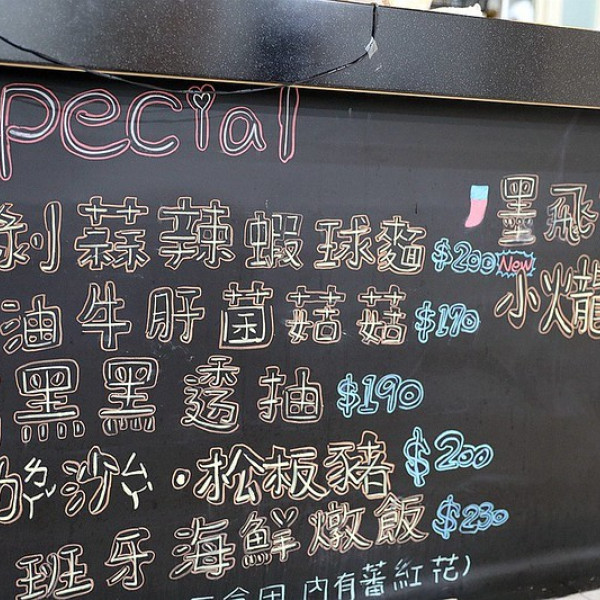 pecial
剁蒜辣蝦球麵 $200
油牛肝菌菇菇 $190
黑黑透抽 $190
沙ㄙㄚ·松板豬 $200
班牙海鮮燉飯 $230
內有蕃紅花)
墨飛
New
小火龍